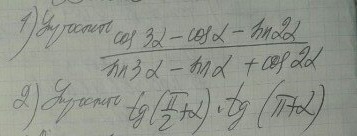 1) Упростить
cos 3α – cos α – sin 2α
sin 3α – sin α + cos 2α
2) Упростить tg(π/2 + α) · tg (π + α)